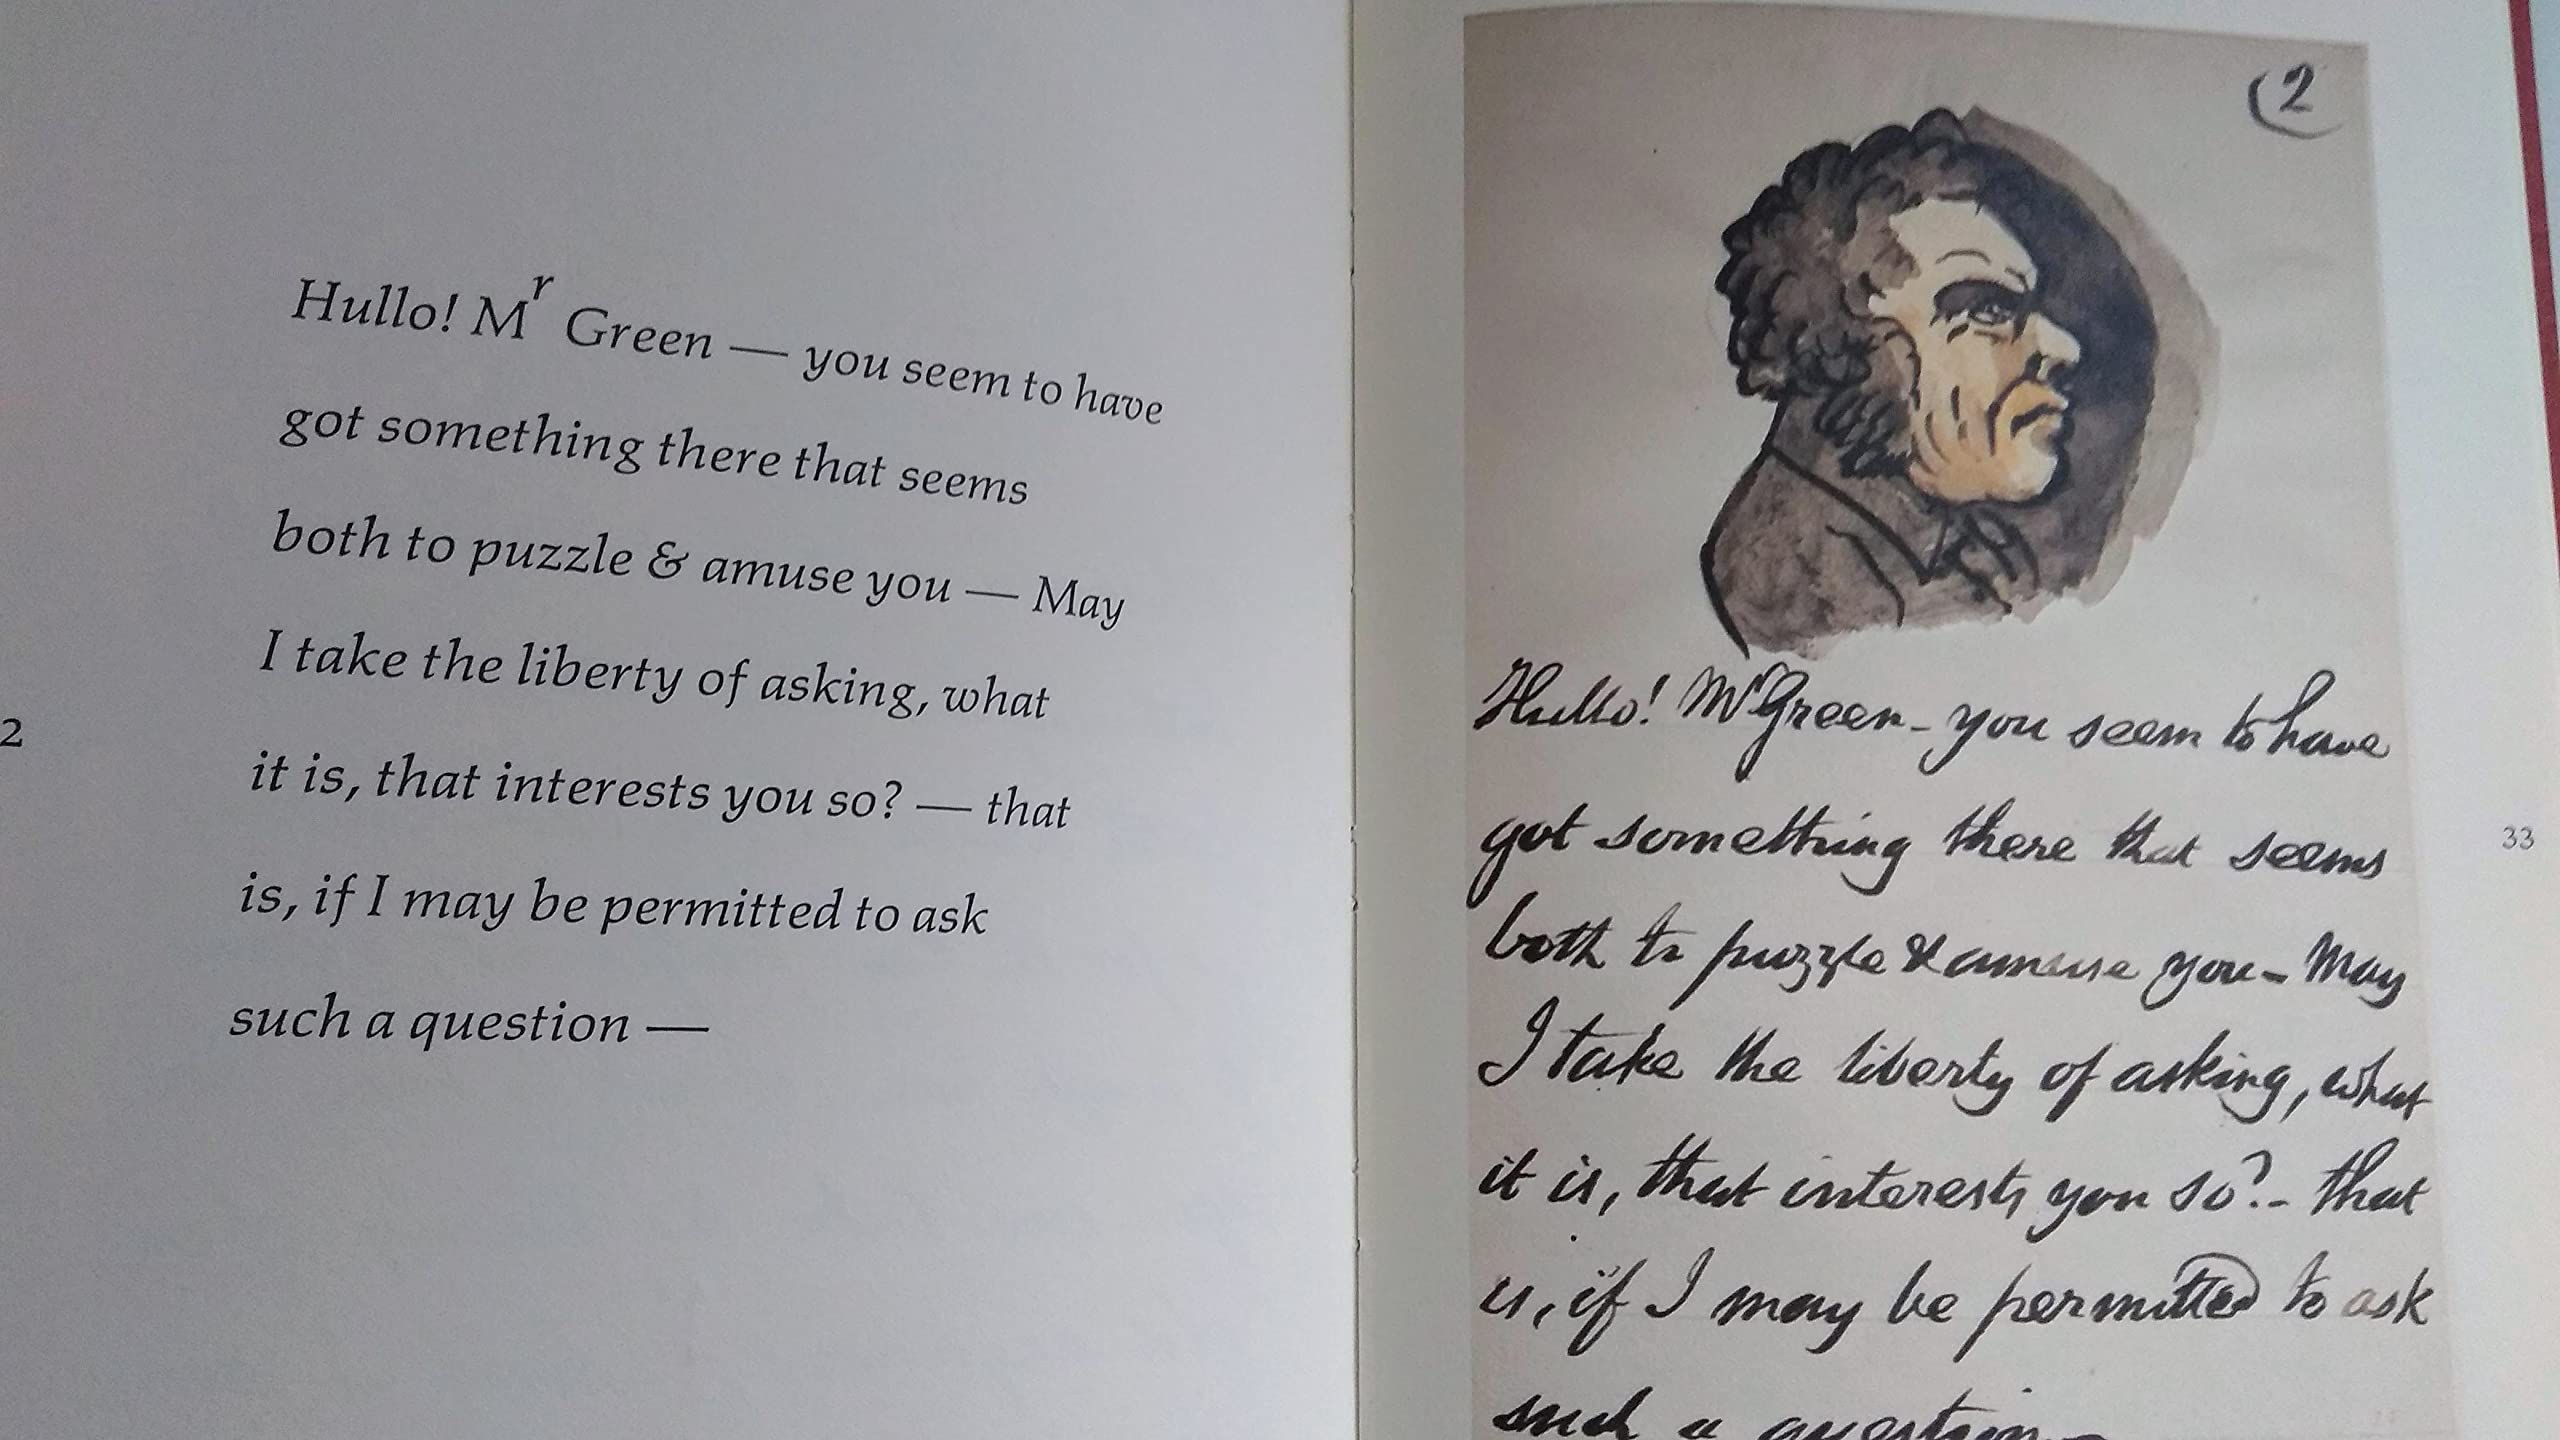 Hullo! Mr Green — you seem to have
got something there that seems
both to puzzle & amuse you — May
I take the liberty of asking, what
it is, that interests you so? — that
is, if I may be permitted to ask
such a question —
2
(2
Hullo! Mr Green - you seem to have
got something there that seems
both to puzzle & amuse you - May
I take the liberty of asking, what
it is, that interests you so? - that
is, if I may be permitted to ask
such a question -
33